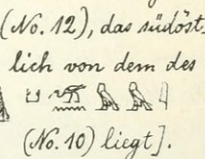 (No. 12), das südöst-
lich von dem des
(No. 10) liegt].